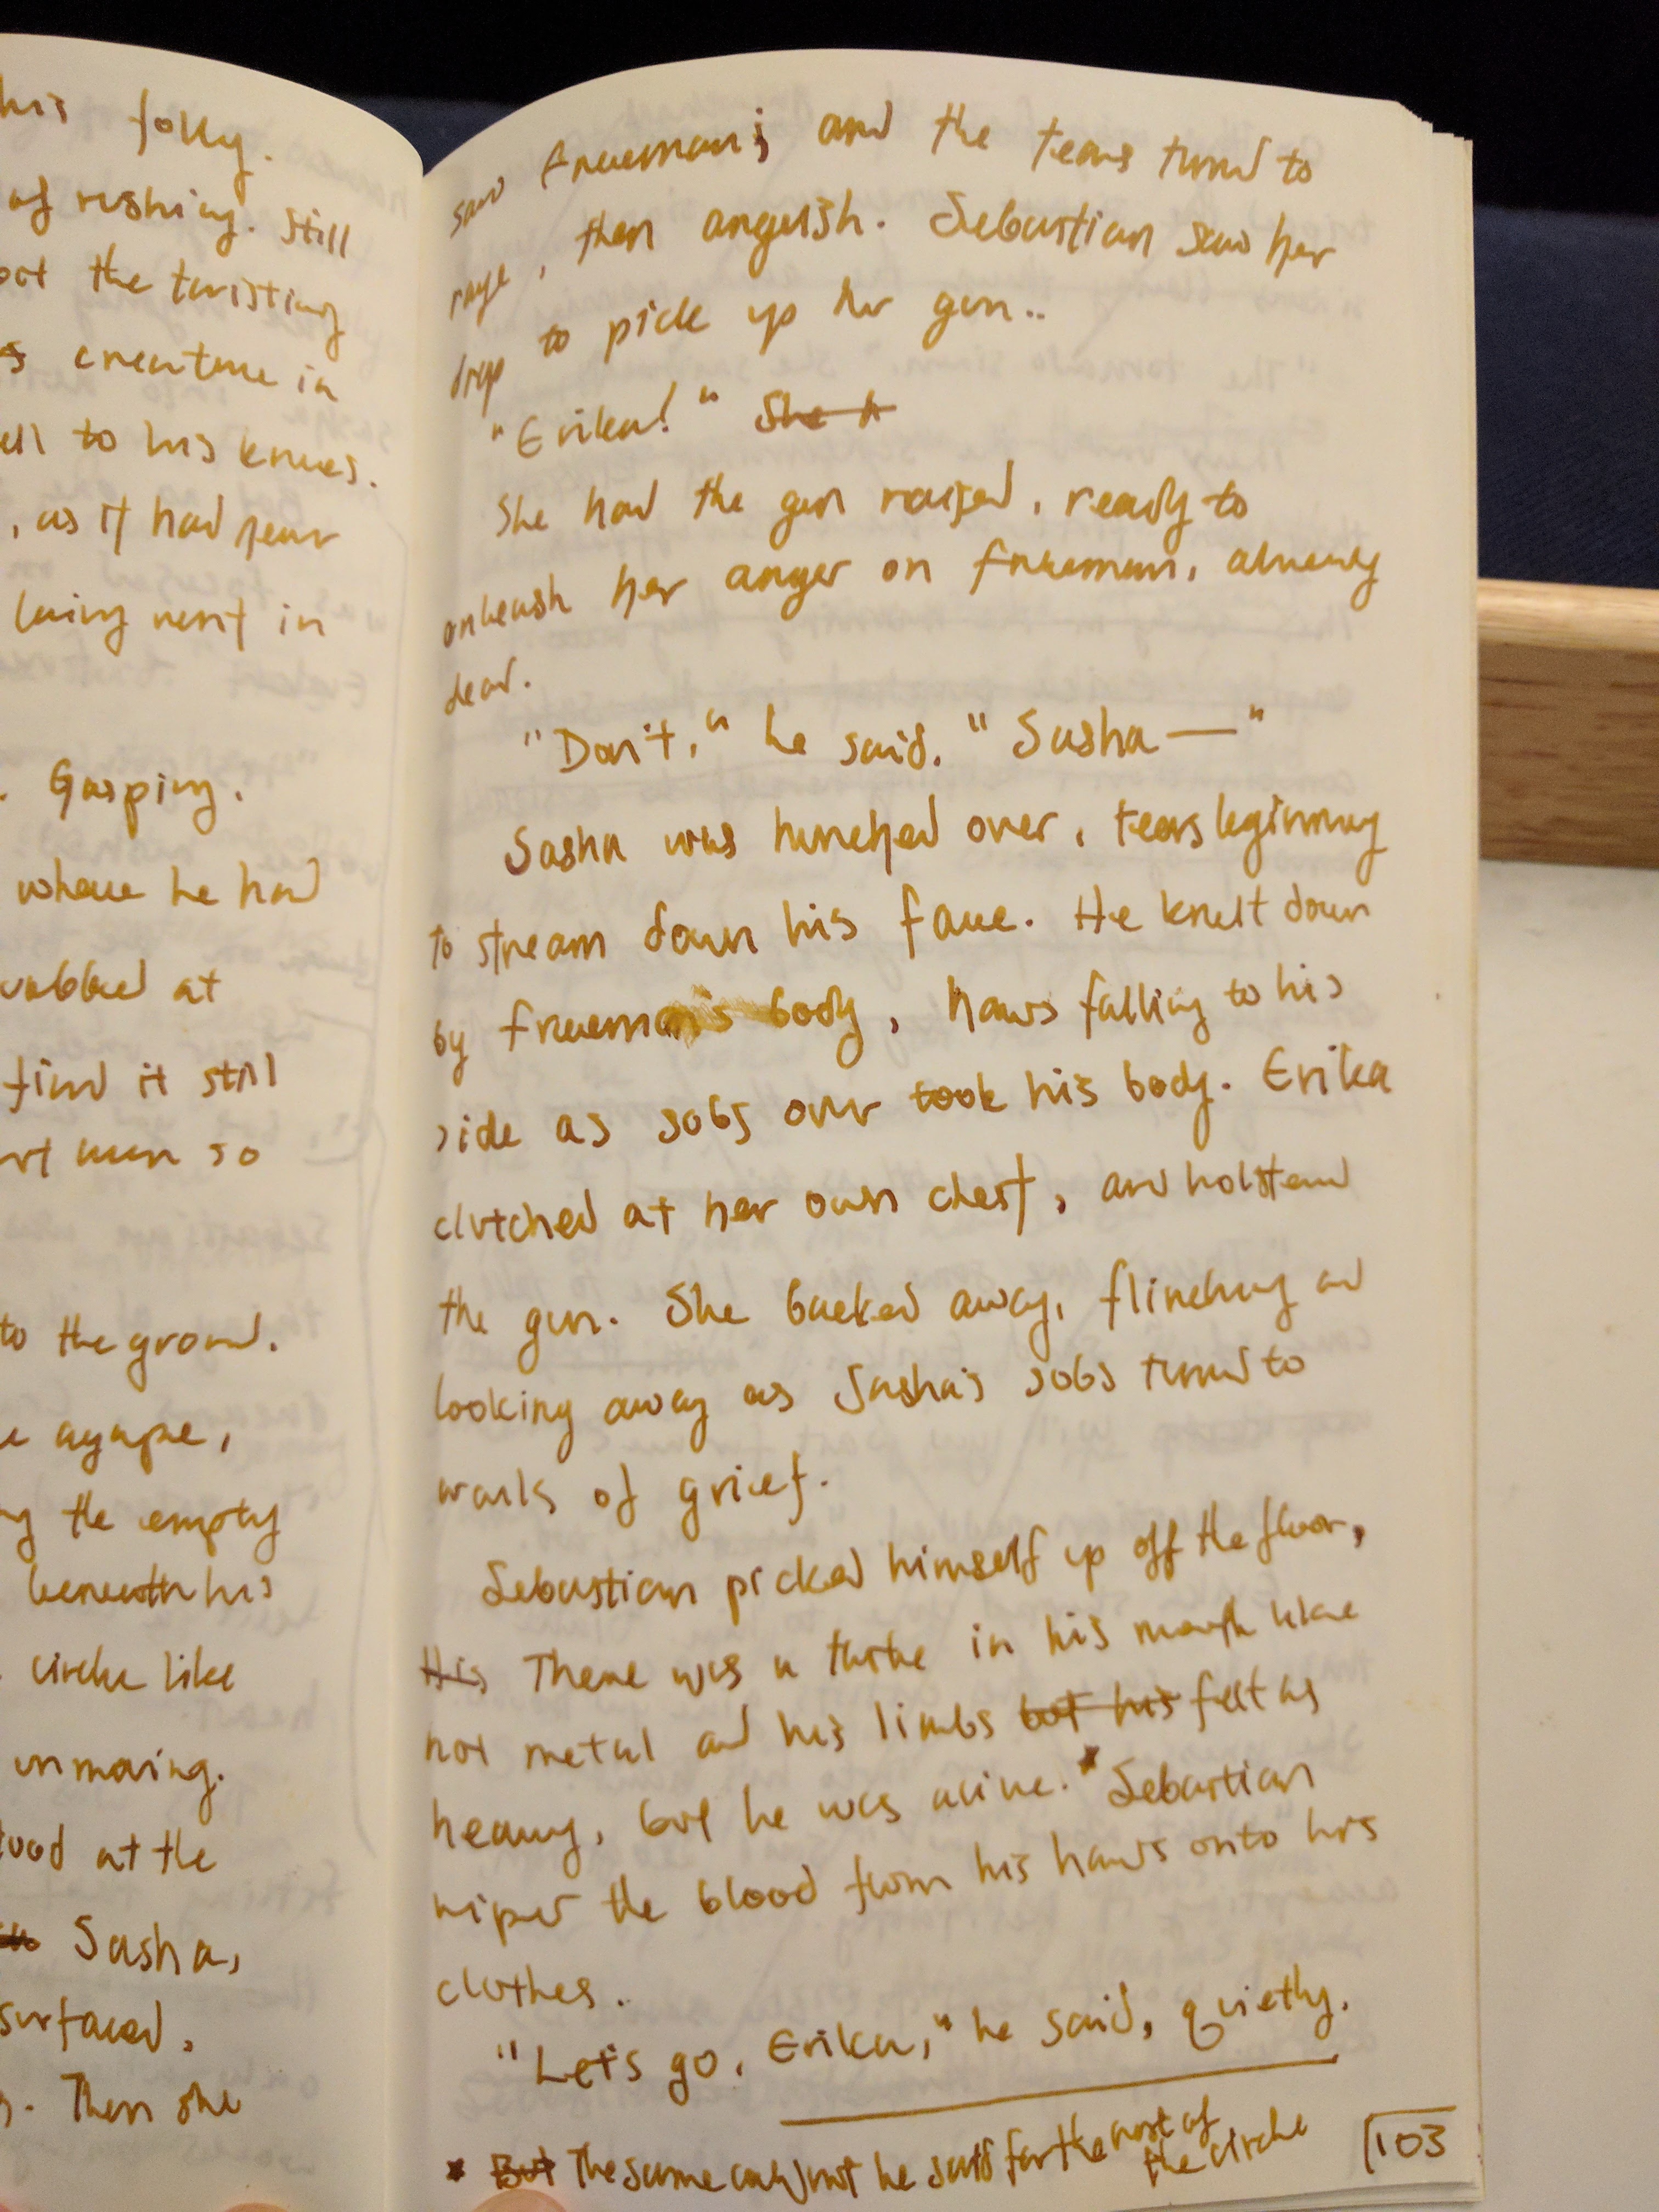 his folly.
of rushing. Still
the twisting
creature in
to his knees.
, as it had fear
being rent in
Gasping.
where he had
at
find it still
men so
to the ground.
agape,
the empty
beneath his
circle like
unmoving.
at the
Sasha,
surfaced,
. Then she
saw Freeman; and the tears turned to
rage, then anguish. Sebastian saw her
drop to pick up her gun..
"Erika!" She h
She had the gun raised, ready to
unleash her anger on Freeman, already
dead.
"Don't," he said. "Sasha—"
Sasha was hunched over, tears beginning
to stream down his face. He knelt down
by Freeman's body, hands falling to his
side as sobs over took his body. Erika
clutched at her own chest, and holstered
the gun. She backed away, flinching and
looking away as Sasha's sobs turned to
wails of grief.
Sebastian picked himself up off the floor,
His There was a taste in his mouth like
hot metal and his limbs but his felt as
heavy, but he was alive.* Sebastian
wiped the blood from his hands onto his
clothes.
"Let's go, Erika," he said, quietly.
* But The same could not be said for the rest of
the circle
103